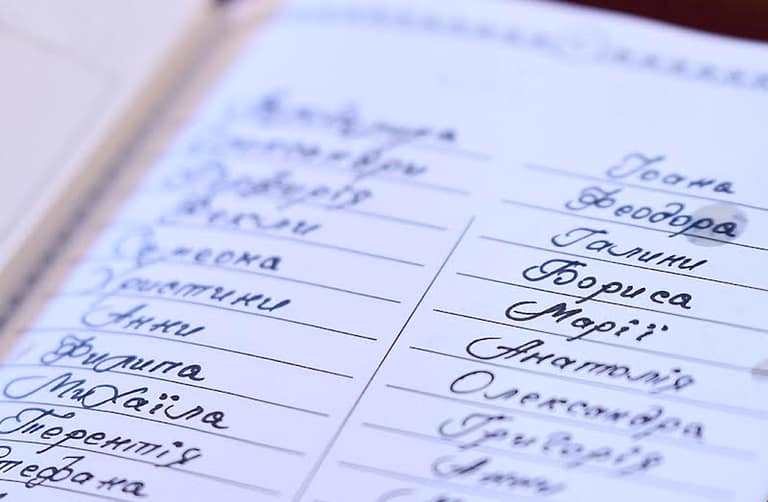 Семеона
Христини
Анни
Филипа
Михаїла
Терентія
Стефана
Іоана
Феодора
Галини
Бориса
Марії
Анатолія
Олександра
Григорія
Анни